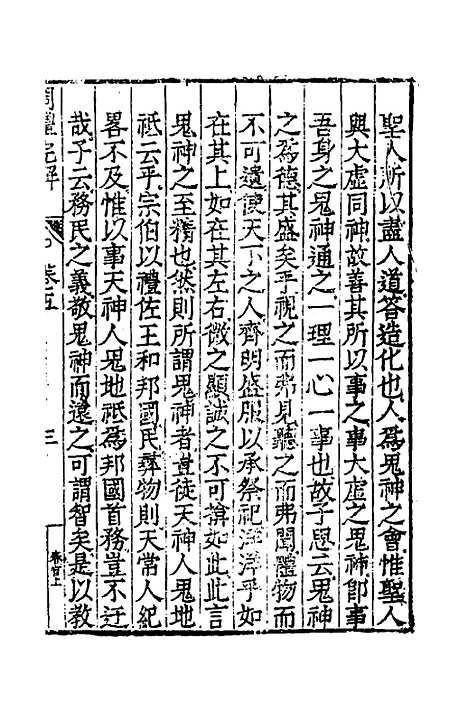 聖人所以盡人道答造化也人爲鬼神之會惟聖人
與大虛同神故善其所以事之事大虛之鬼神卽事
吾身之鬼神通之一理一心一事也故子思云鬼神
之爲德其盛矣乎視之而弗見聽之而弗聞體物而
不可遺使天下之人齊明盛服以承祭祀洋洋乎如
在其上如在其左右微之顯誠之不可揜如此此言
鬼神之至精也然則所謂鬼神者豈徒天神人鬼地
祇云乎宗伯以禮佐王和邦國民舞物則天常人紀
畧不及惟以事天神人鬼地祇爲邦國首務豈不迂
哉子云務民之義敬鬼神而遠之可謂智矣是以教
周禮完解 卷五 三
春官上